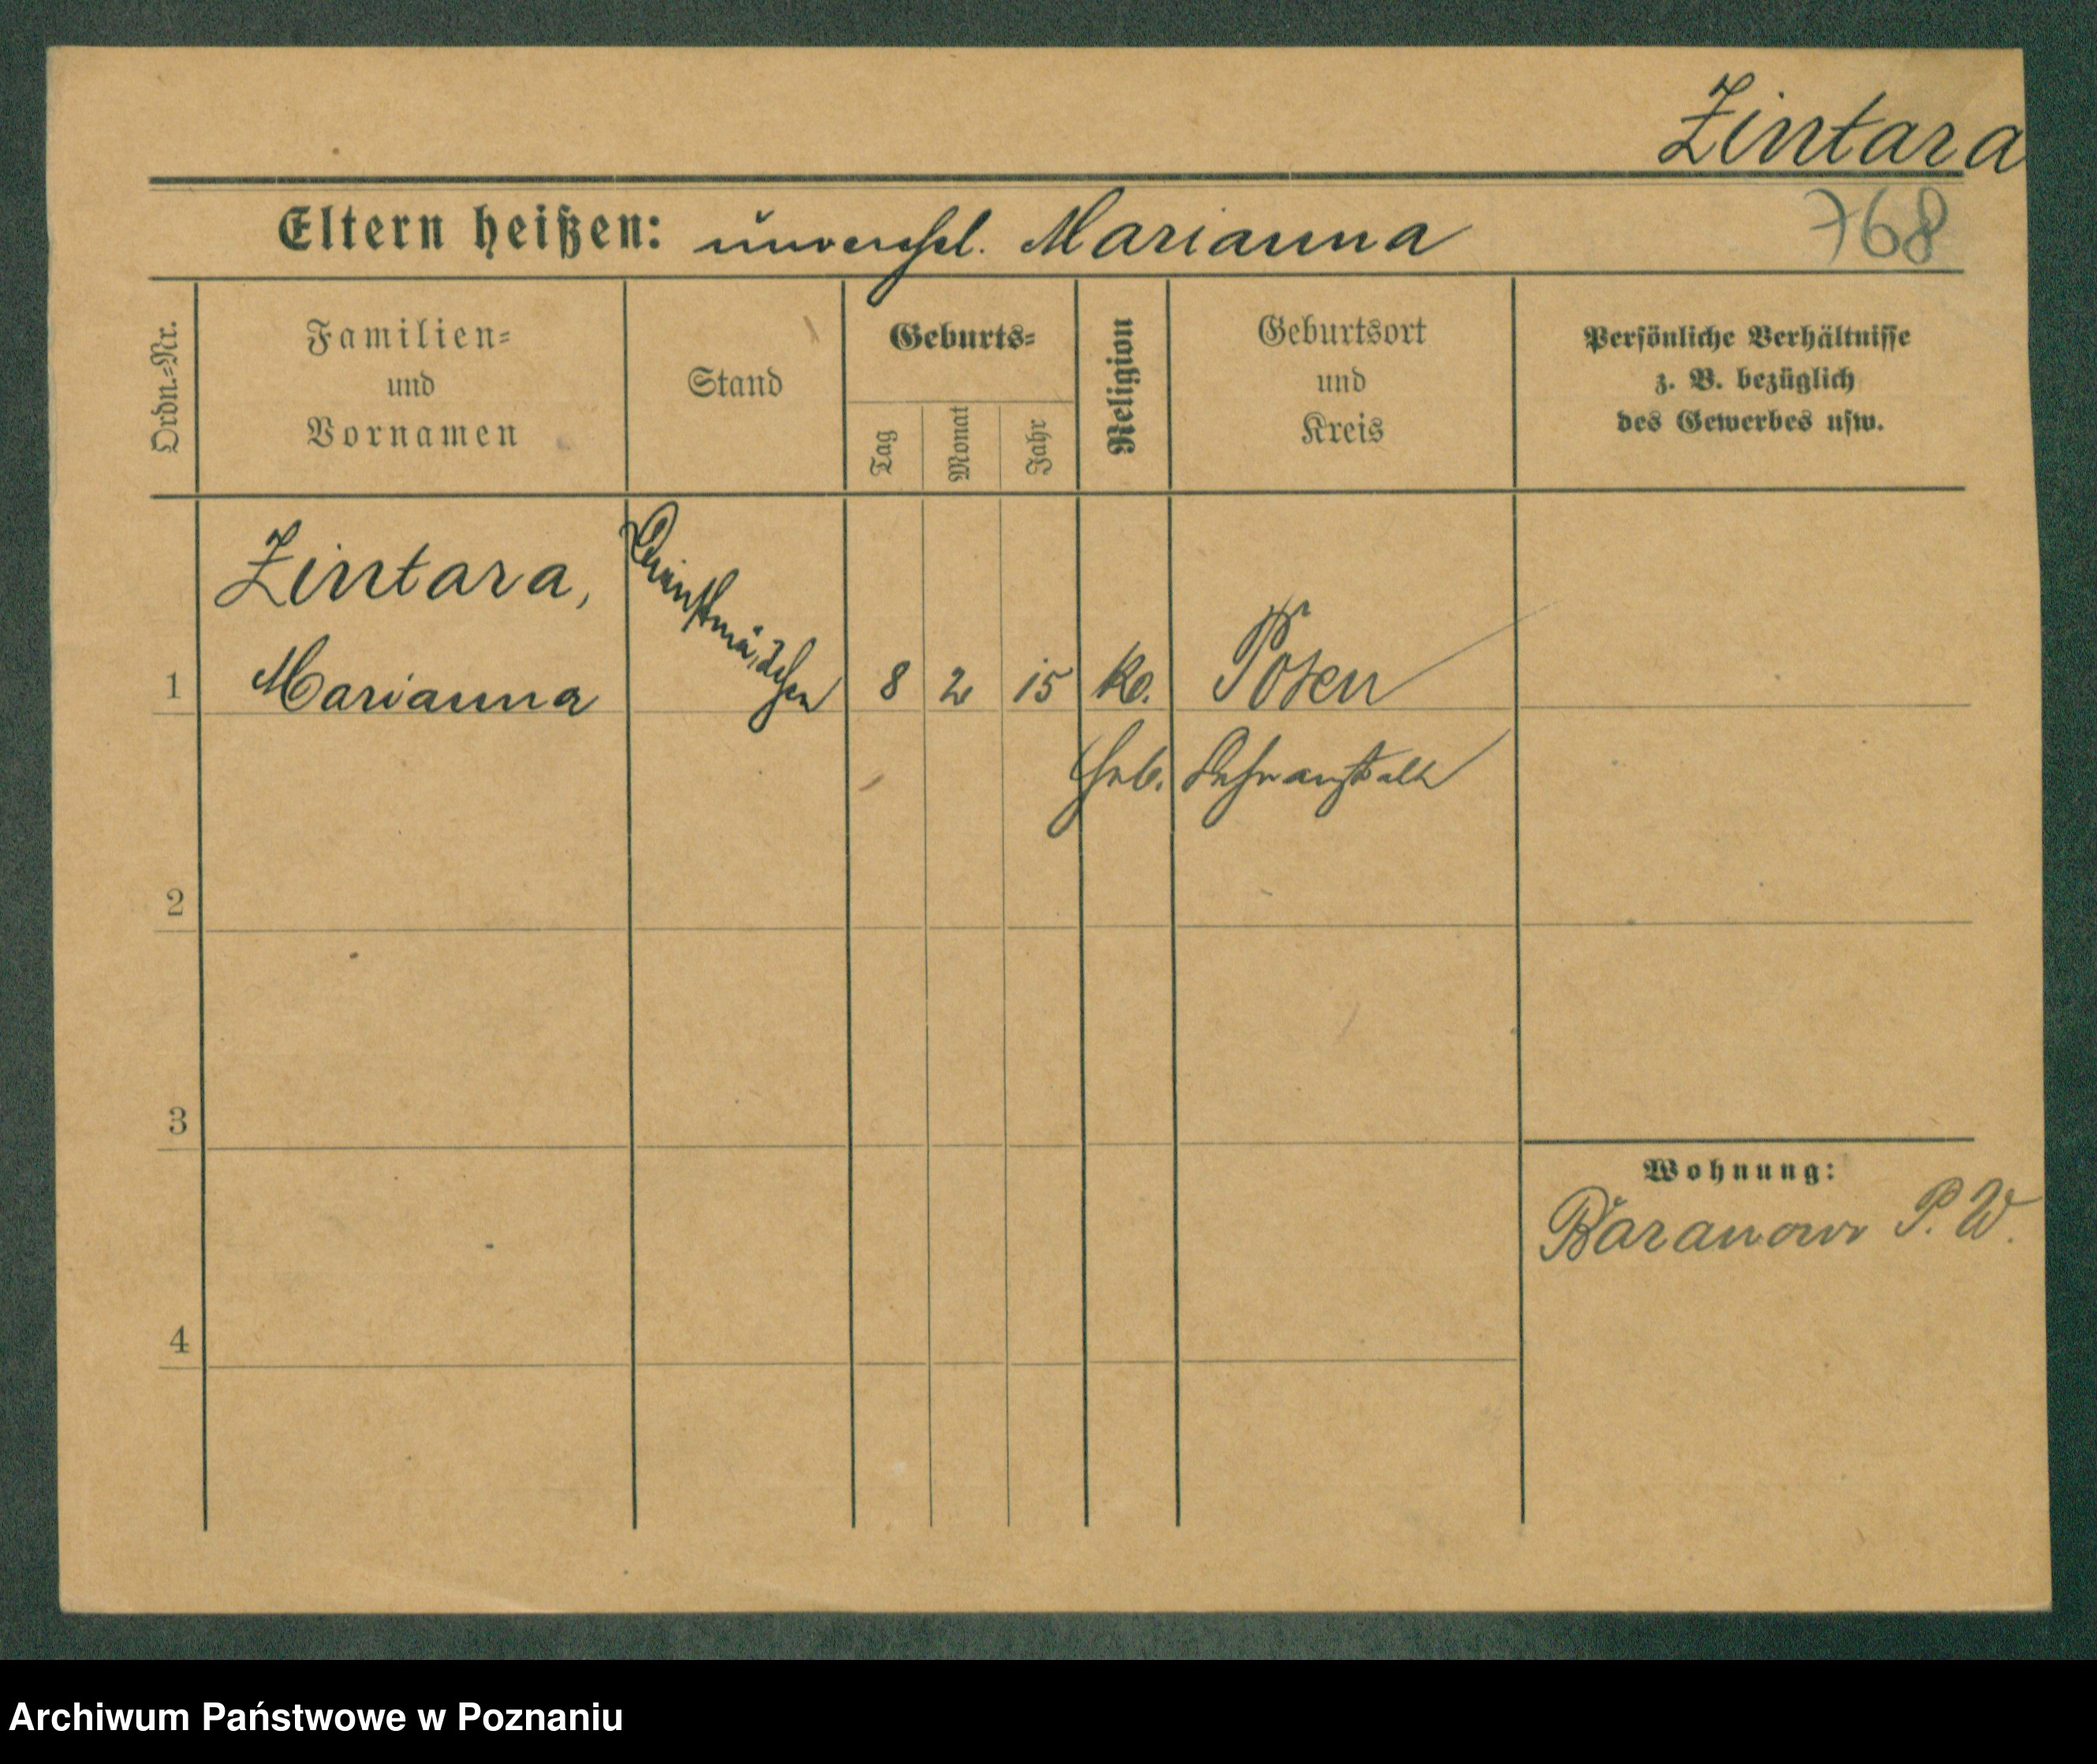 Zintara
Eltern heißen: unverehel. Marianna
768
Ordn.=Nr.
Familien=
und
Vornamen
Stand
Geburts=
Tag
Monat
Jahr
Religion
Geburtsort
und
Kreis
Persönliche Verhältnisse
z. B. bezüglich
des Gewerbes usw.
1
Zintara,
Marianna
Dienstmädchen
8 2 15
Posen
Heb. Lehranstalt
2
3
4
Wohnung:
Baranowo P. W.
Archiwum Państwowe w Poznaniu